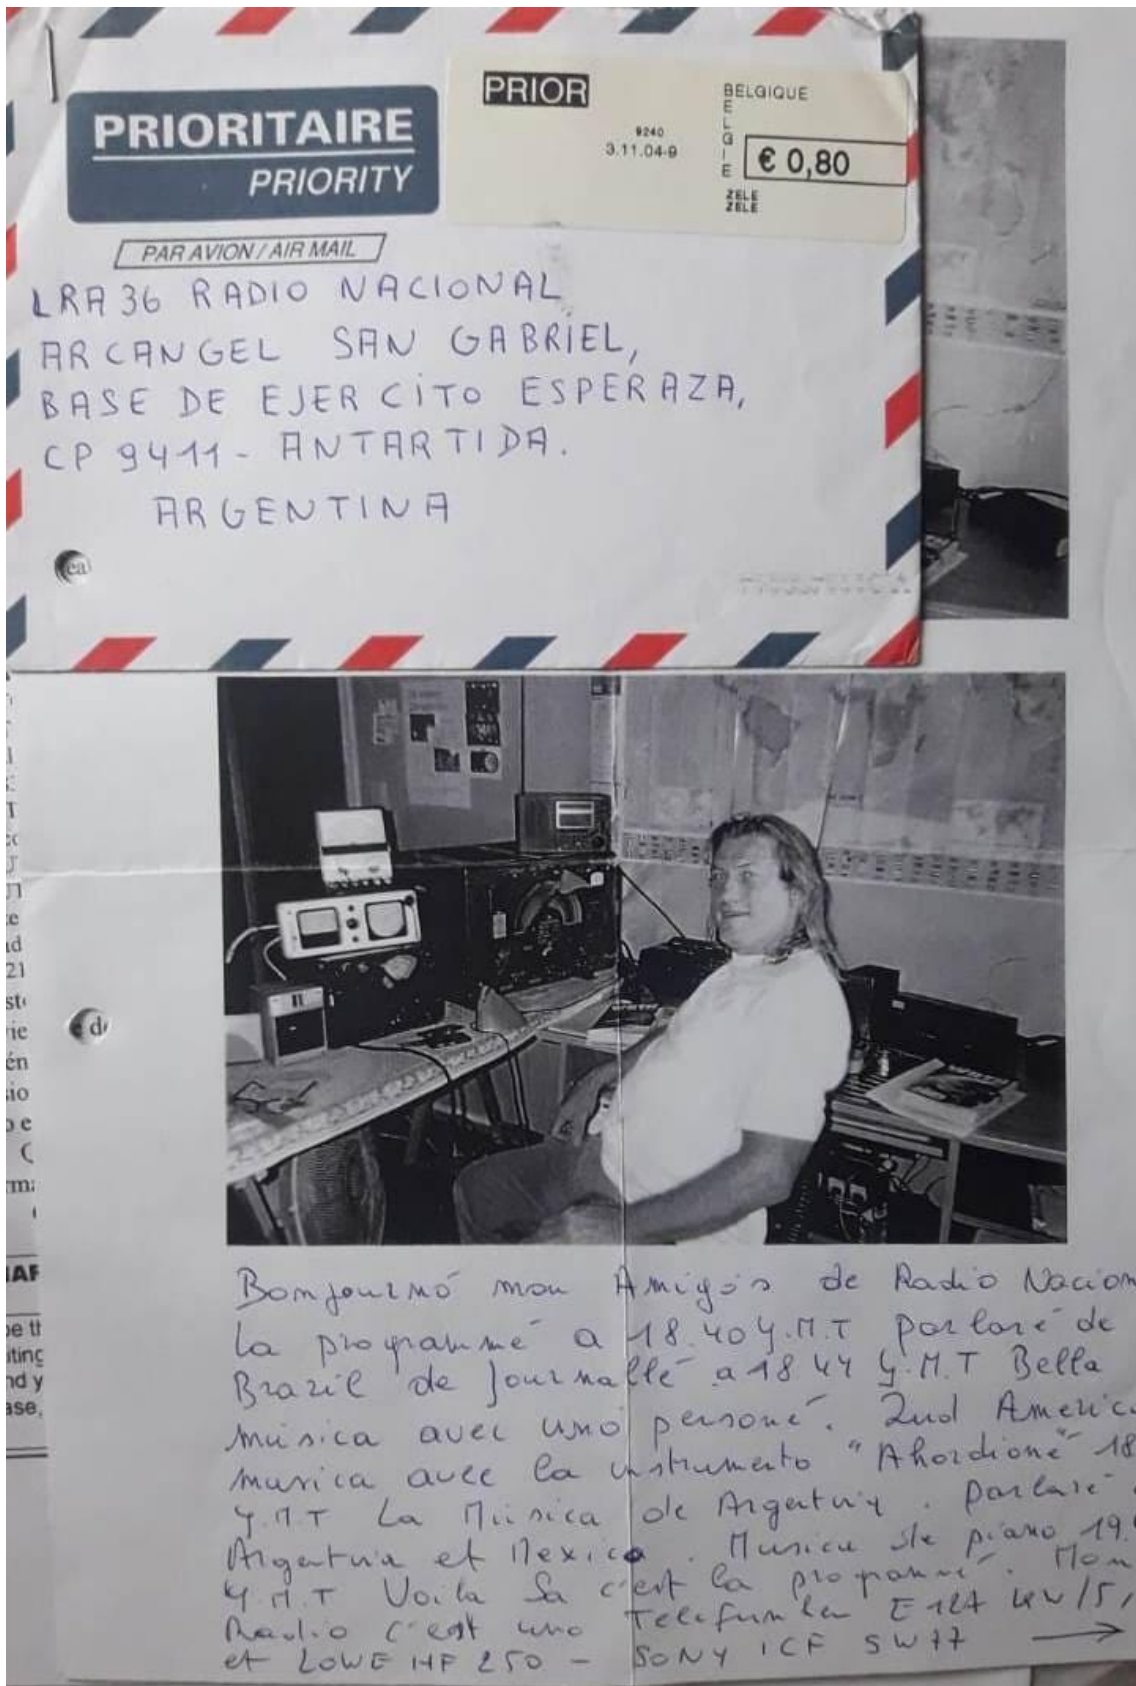 PRIORITAIRE
PRIORITY
PRIOR
9240
3.11.04-9
BELGIQUE
BELGIE
€ 0,80
ZELE
ZELE
PAR AVION / AIR MAIL
LRA36 RADIO NACIONAL
ARCANGEL SAN GABRIEL,
BASE DE EJERCITO ESPERAZA,
CP 9411 - ANTARTIDA.
ARGENTINA
ea
de
21
én
Bonjournó mon Amigós de Radio Nacion
La programmé a 18.40 G.M.T parlaré de
Brazil de Journallé a 18 44 G.M.T Bella
música avec uno personé. Zud America
musica avec la instrumento "Ahordioné" 18
G.M.T La Música de Argentiny. parlaré
Argentina et Mexico. Musica de piano 19.
G.M.T Voila Sa c'est la programmé. Mon
Radio c'est uno Telefunken E127 KW/5,
et LOWE HF 250 - SONY ICF SW77 →